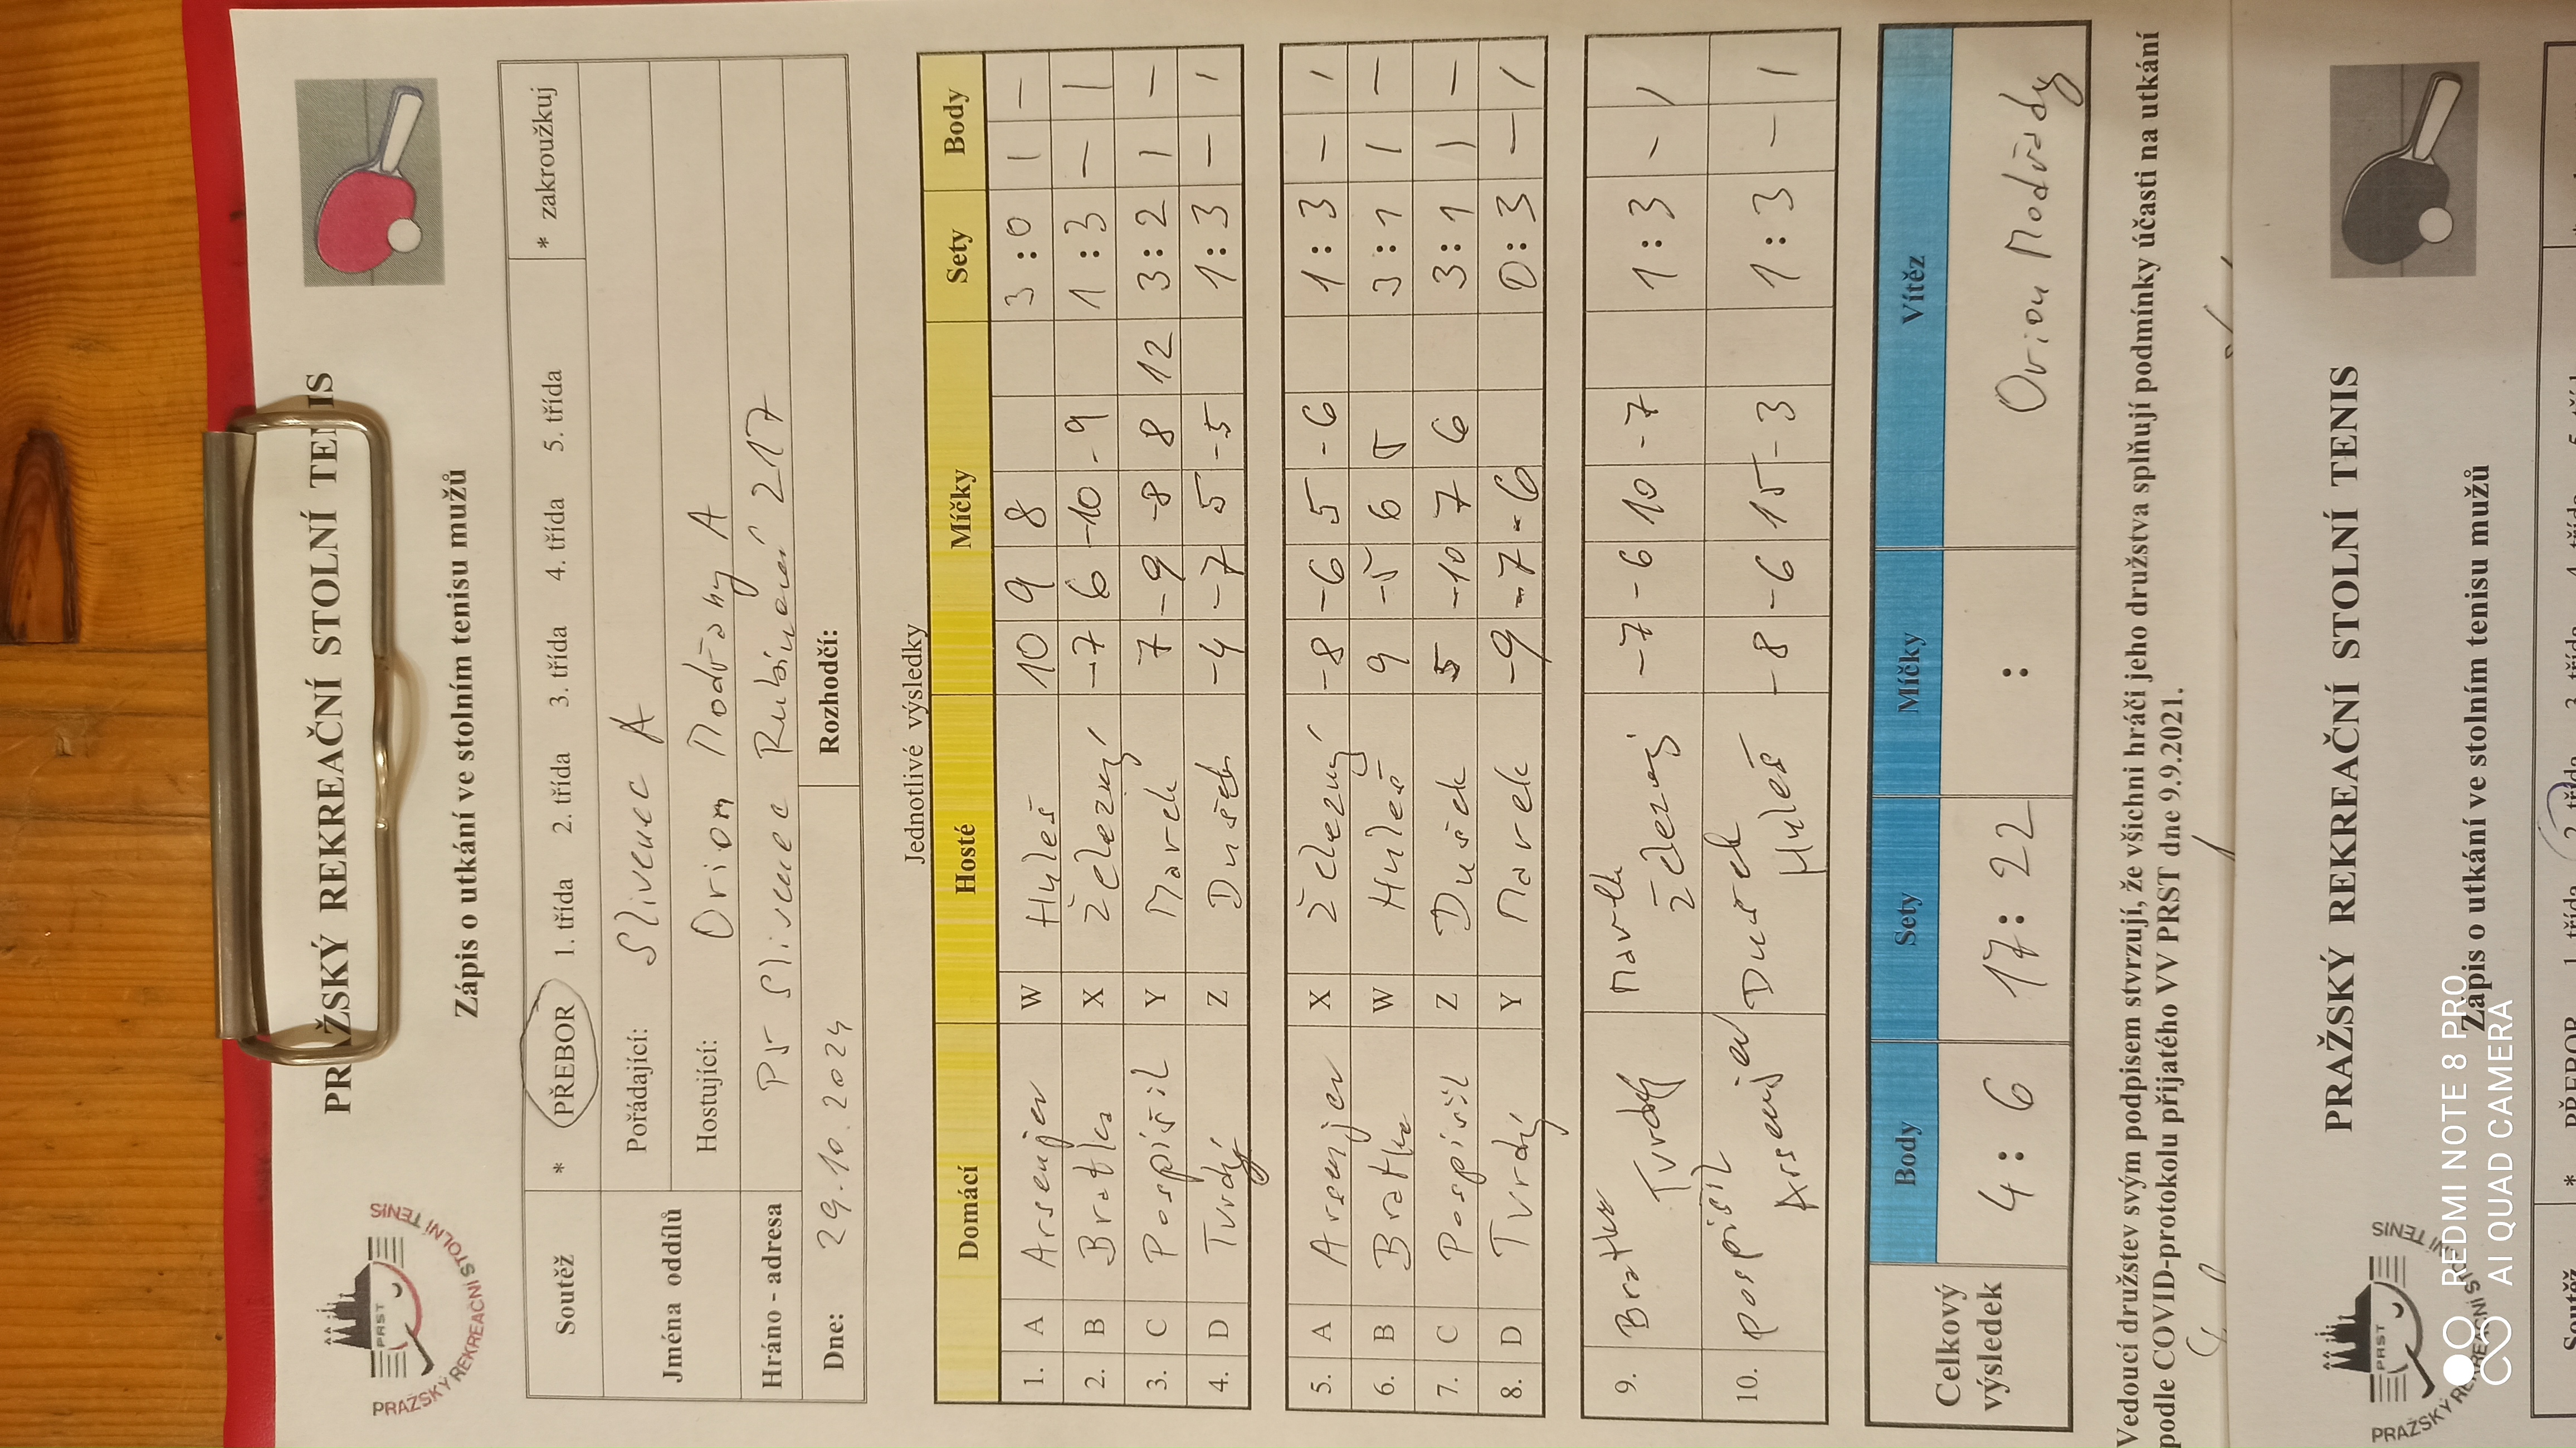 PRAŽSKÝ REKREAČNÍ STOLNÍ TENIS
PRST
PRAŽSKÝ REKREAČNÍ STOLNÍ TENIS
Zápis o utkání ve stolním tenisu mužů
Soutěž * PŘEBOR 1. třída 2. třída 3. třída 4. třída 5. třída * zakroužkuj
Jména oddílů Pořádající: Slivenec A
Hostující: Orion Modřany A
Hráno - adresa Slivenec 217
Dne: 29.10.2024 Rozhodčí:
Jednotlivé výsledky
Domácí Hosté Míčky Sety Body
1. A Arsenjev W Huleš 10 9 8 3 : 0 1 –
2. B Bratka X Železný -7 6 -10 -9 1 : 3 – 1
3. C Pospíšil Y Marek 7 -9 -8 8 12 3 : 2 1 –
4. D Tvrdý Z Dušek -4 -7 5 -5 1 : 3 – 1
5. A Arsenjev X Železný -8 -6 5 -6 1 : 3 – 1
6. B Bratka W Huleš 9 -5 6 5 3 : 1 1 –
7. C Pospíšil Z Dušek 5 -10 7 6 3 : 1 1 –
8. D Tvrdý Y Marek -9 -7 -6 0 : 3 – 1
9. Bratka Tvrdý Marek Železný -7 -6 10 -7 1 : 3 – 1
10. Pospíšil Arsenjev Dušek Huleš -8 -6 15 -3 1 : 3 – 1
Celkový výsledek Body Sety Míčky Vítěz
4 : 6 17 : 22 : Orion Modřany
Vedoucí družstev svým podpisem stvrzují, že všichni hráči jeho družstva splňují podmínky účasti na utkání
podle COVID-protokolu přijatého VV PRST dne 9.9.2021.
PRAŽSKÝ REKREAČNÍ STOLNÍ TENIS
PRST
PRAŽSKÝ REKREAČNÍ STOLNÍ TENIS
Zápis o utkání ve stolním tenisu mužů
REDMI NOTE 8 PRO
AI QUAD CAMERA